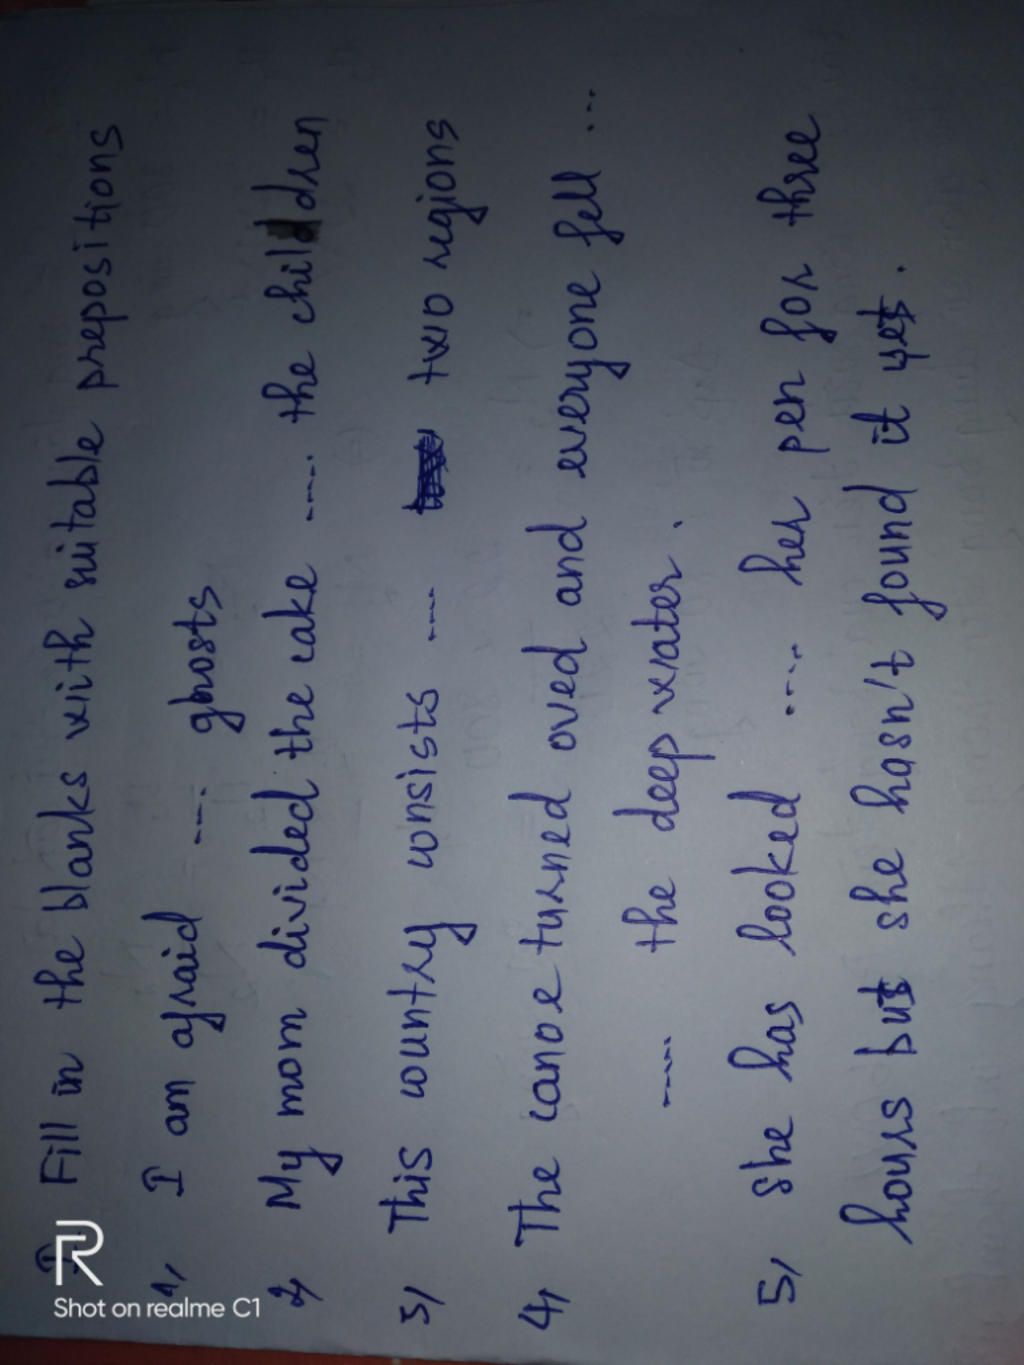 I, Fill in the blanks with suitable prepositions
1, I am afraid ---- ghosts
2, My mom divided the cake ---- the children
3, This country consists ---- two regions
4, The canoe turned oved and everyone fell ...
---- the deep water.
5, she has looked .... her pen for three
hours but she hasn't found it yet.
R
Shot on realme C1